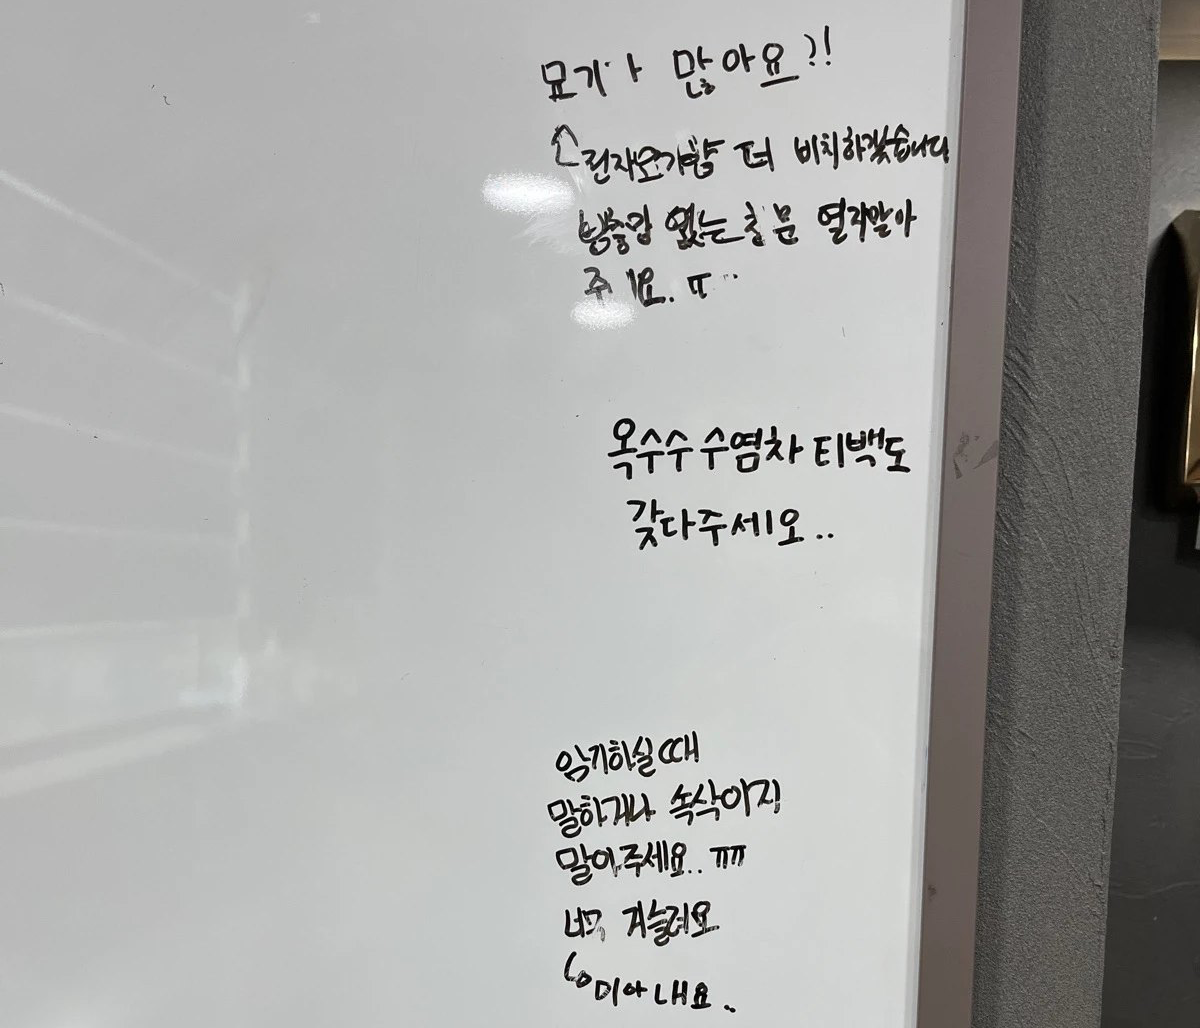 모기가 많아요?!
전자모기향 더 비치하겠습니다
방충망 없는 창문 열지말아
주세요. ㅠ..
옥수수 수염차 티백도
갖다주세요..
암기하실때
말하거나 속삭이지
말아주세요.. ㅠㅠ
너무 거슬려요
미안해요..